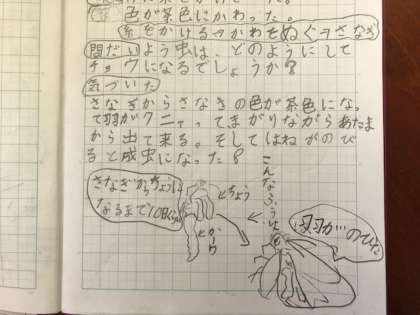 色が茶色にかわった。
糸をかける→かわをぬぐ→さなぎ
問だいよう虫は、どのようにして
チョウになるでしょうか?
気づいた
さなぎからさなぎの色が茶色にな。
て羽がクニャってまがりながらあたま
から出て来る。そしてはねがのび
ると成虫になった?
さなぎからちょうに
なるまで10日くらい
ちょう
から
こんなふうに
羽がのびた